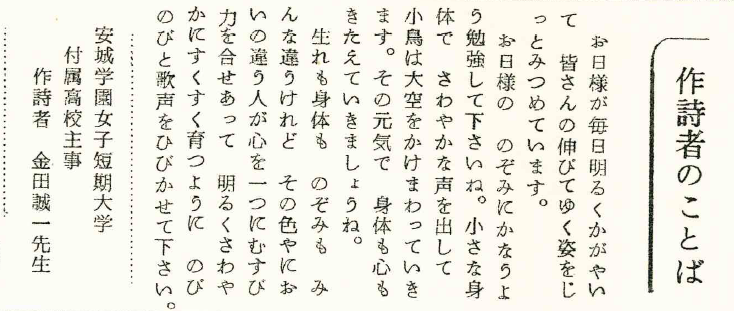 作詩者のことば
お日様が毎日明るくかがやい
て　皆さんの伸びてゆく姿をじ
っとみつめています。
お日様の　のぞみにかなうよ
う勉強して下さいね。小さな身
体で　さわやかな声を出して
小鳥は大空をかけまわっていき
ます。その元気で　身体も心も
きたえていきましょうね。
生れも身体も　のぞみも　み
んな違うけれど　その色やにお
いの違う人が心を一つにむすび
力を合せあって　明るくさわや
かにすくすく育つように　のび
のびと歌声をひびかせて下さい。
安城学園女子短期大学
付属高校主事
作詩者　金田誠一先生